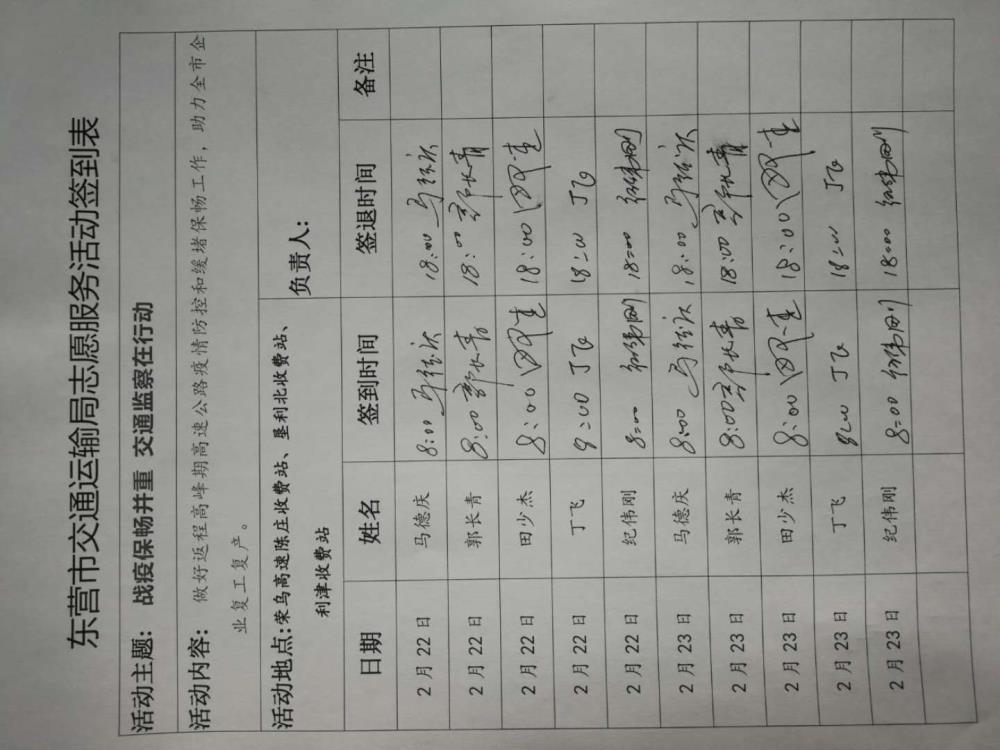 东营市交通运输局志愿服务活动签到表
活动主题： 战疫保畅并重 交通监察在行动
活动内容： 做好返程高峰期高速公路疫情防控和缓堵保畅工作，助力全市企
业复工复产。
活动地点：荣乌高速陈庄收费站、垦利北收费站、
利津收费站
负责人：
日期 姓名 签到时间 签退时间 备注
2月22日 马德庆 8:00 马德庆 18:00 马德庆
2月22日 郭长青 8:00 郭长青 18:00 郭长青
2月22日 田少杰 8:00 18:00
2月22日 丁飞 8:00 丁飞 18:00 丁飞
2月22日 纪伟刚 8:00 纪伟刚 18:00 纪伟刚
2月23日 马德庆 8:00 马德庆 18:00 马德庆
2月23日 郭长青 8:00 郭长青 18:00 郭长青
2月23日 田少杰 8:00 18:00
2月23日 丁飞 8:00 丁飞 18:00 丁飞
2月23日 纪伟刚 8:00 纪伟刚 18:00 纪伟刚